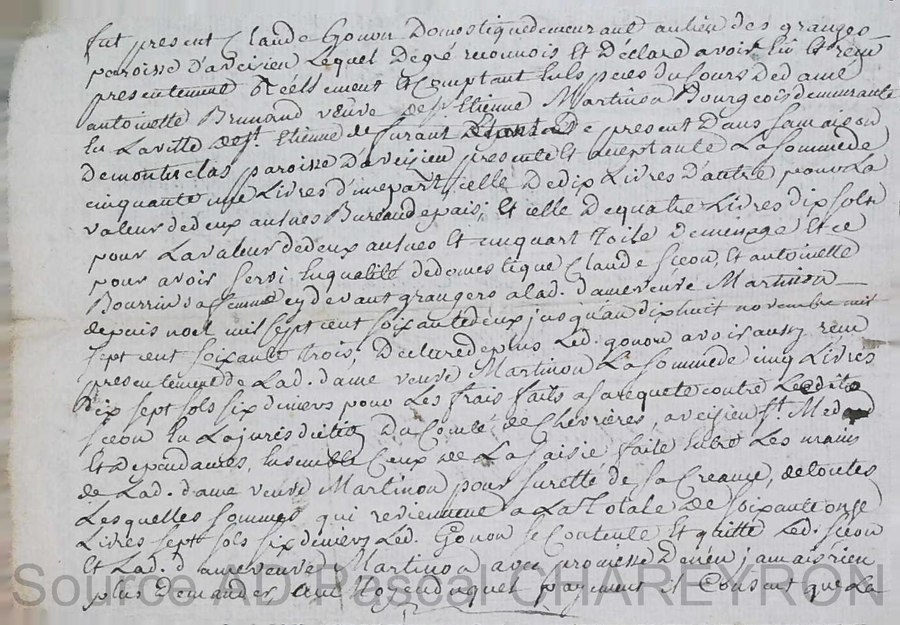 fut present Claude Gonon Domestique demeurant au lieu des granges
paroisse D'aveisien Lequel Degré reconnois Et Déclare avoir Eu Et recu
presentement Réellement Et Comptant En Espèces du Cours De dame
antoinette Brunand veuve de Sr. Etienne Martinon Bourgeois demeurante
En La ville de St. Etienne de furant De present Dans sa maison
De montesclas paroisse D'aveisien presente Et acceptante La somme de
cinquante une Livres D'une part, Celle De dix Livres D'autre pour La
valeur de deux aulnes Bureau de pais; Et celle De quatre Livres dix sols
pour La valeur de deux aulnes Et un quart Toile De menage Et ce
pour avoir servi En qualité de domestique Claude Sicon, Et antoinette
Bourrin sa femme cy devant grangers a lad. dame veuve Martinon
depuis noel mil sept cent soixante deux jusqu'au dix huit novembre mil
sept cent soixante trois; Declare de plus Led. gonon avois aussy recu
presentement de Lad. dame veuve Martinon La somme de cinq Livres
Dix sept sols six deniers pour Les frais faits a sa requete contre Ledit
sicon En La jurisdiction Du Comté de Chevrières, aveisien St. Medard
Et Dependances, Ensemble Ceux de La saisie faite Entre Les mains
de Lad. dame veuve Martinon pour surette de sa Creance, de toutes
Lesquelles sommes qui reviennent a La Totale De soixante onze
Livres sept sols six deniers Led. Gonon se Contente Et quitte Led. sicon
Et Lad. dame veuve Martinon avec promesse De n'en jamais rien
plus Demander payement Et Consent que La
Source AD Pascal CHAREYRON